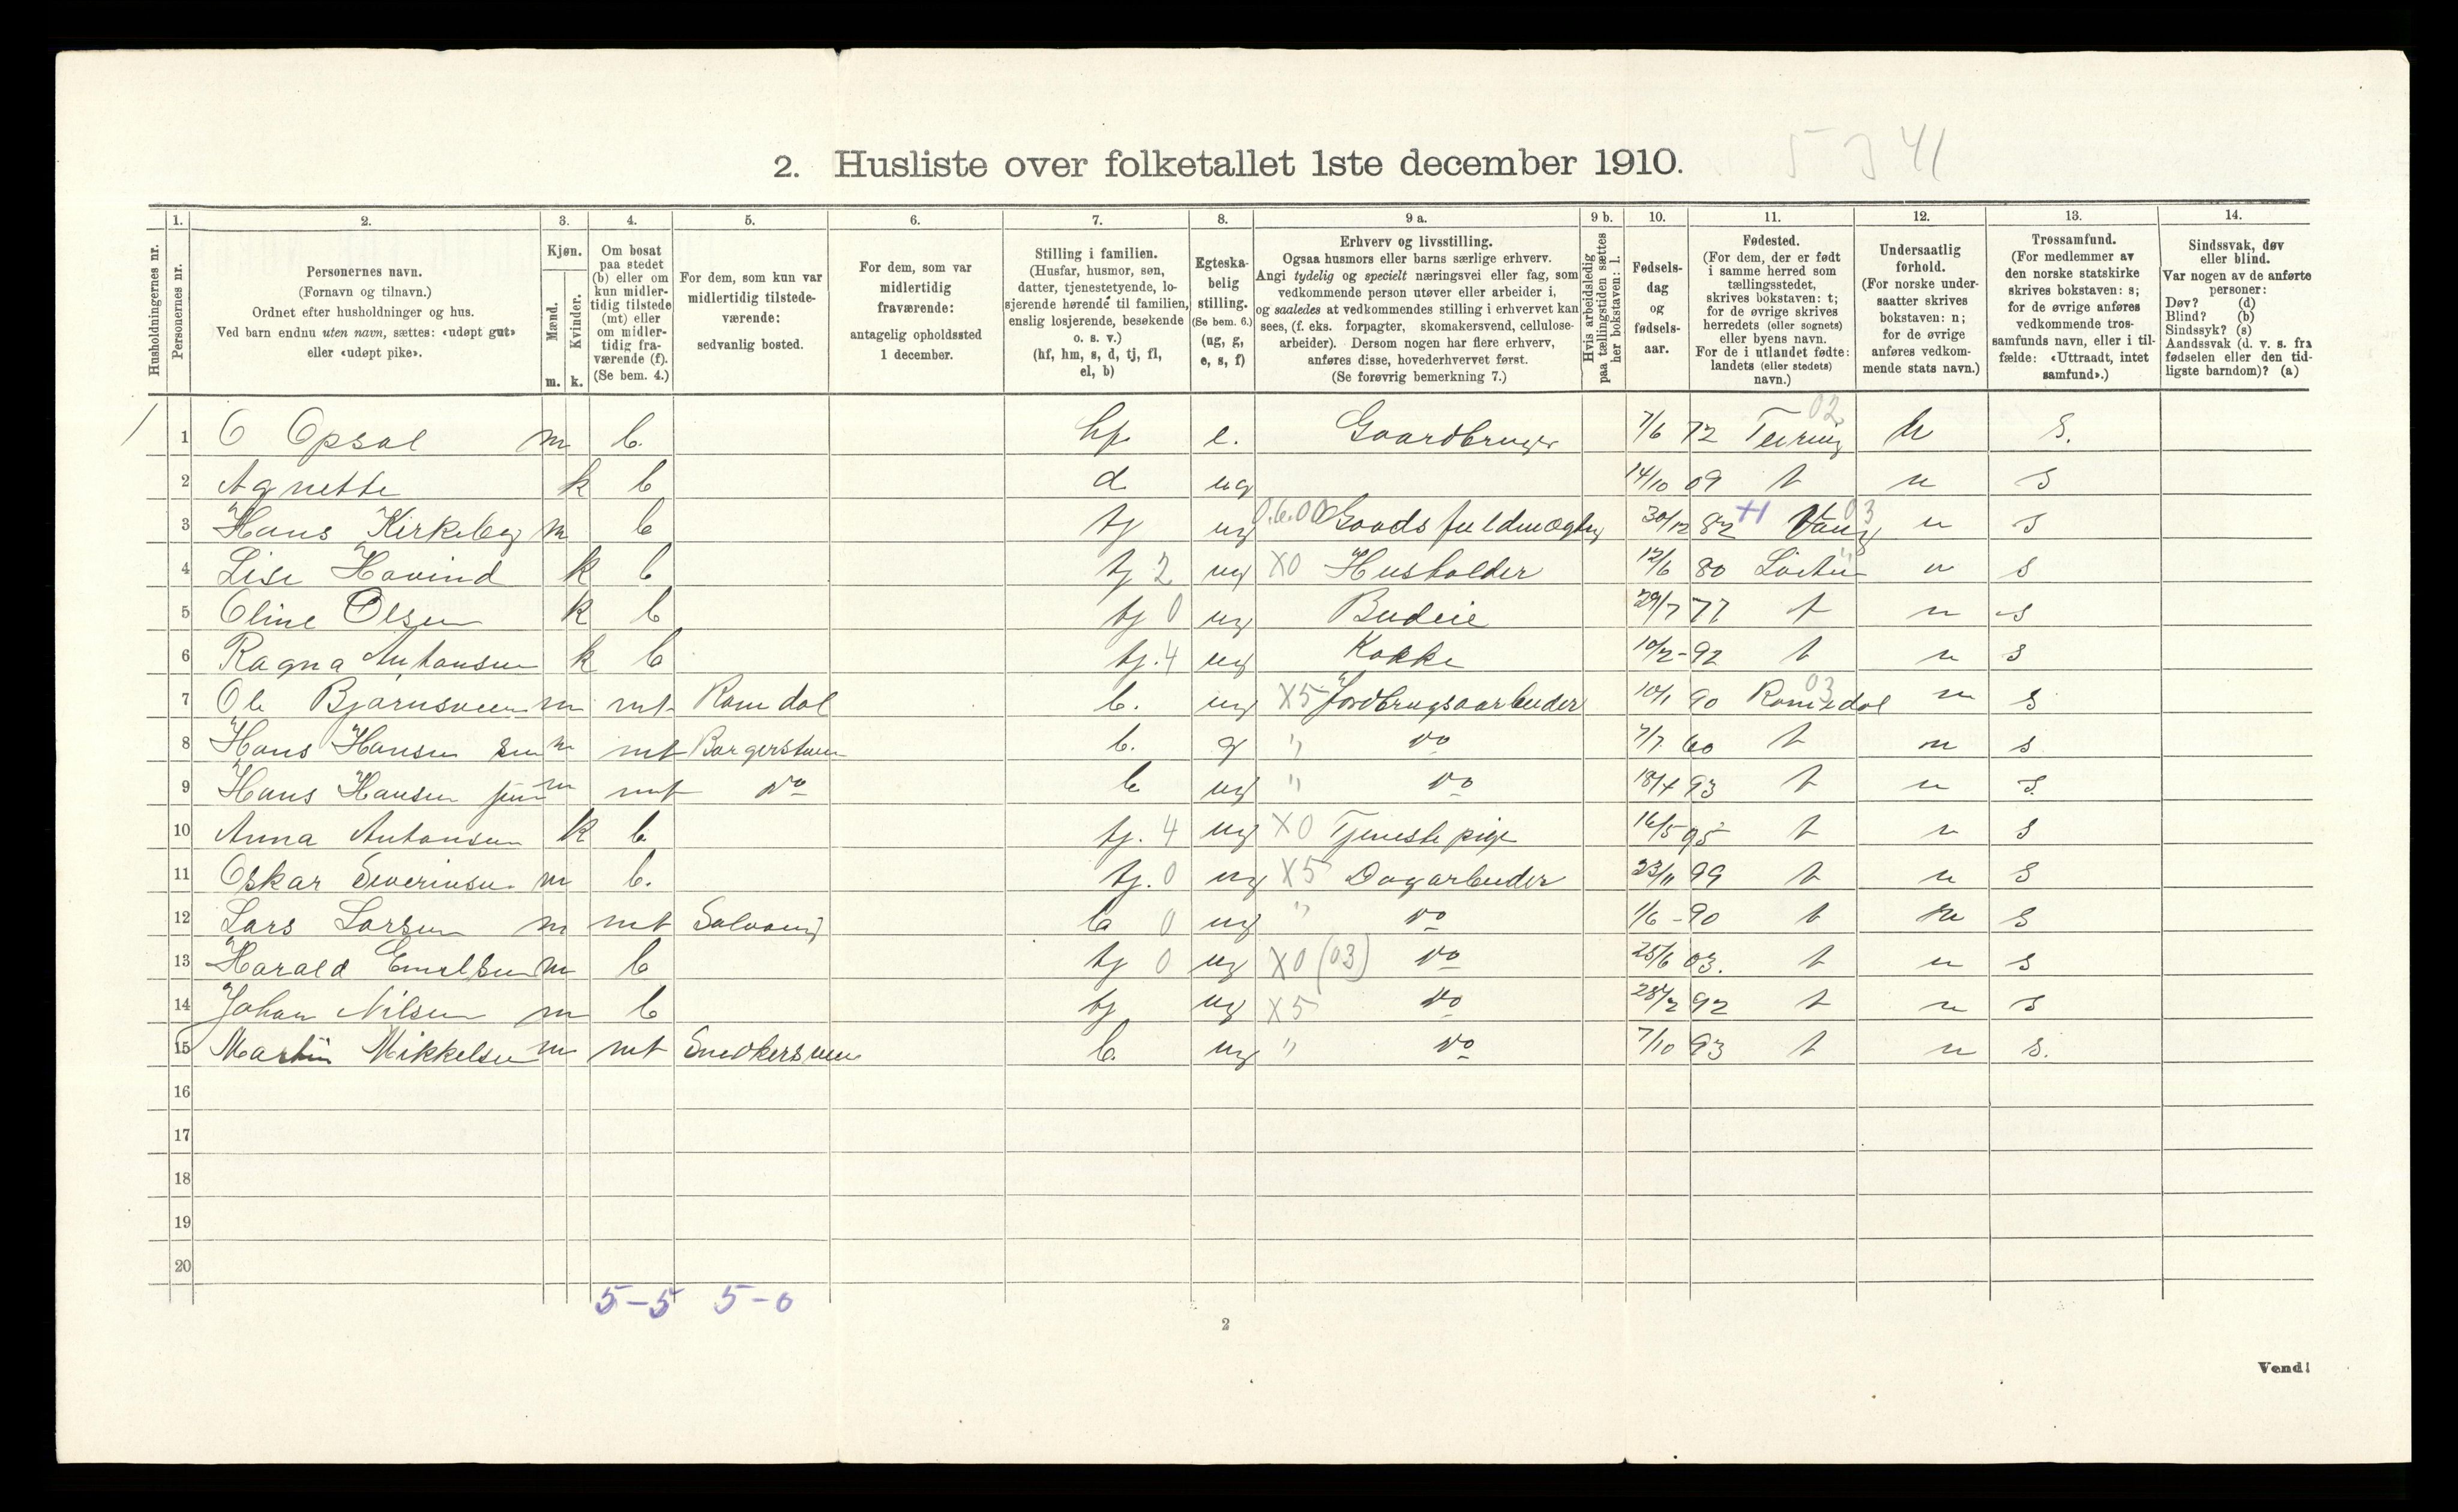 5 3 41
2. Husliste over folketallet 1ste december 1910.
Husholdningernes nr.
1.
Personernes nr.
2.
Personernes navn.
(Fornavn og tilnavn.)
Ordnet efter husholdninger og hus.
Ved barn endnu uten navn, sættes: «udøpt gut»
eller «udøpt pike».
3.
Kjøn.
Mænd.
Kvinder.
m. k.
4.
Om bosat
paa stedet
(b) eller om
kun midler-
tidig tilstede
(mt) eller
om midler-
tidig fra-
værende (f).
(Se bem. 4.)
5.
For dem, som kun var
midlertidig tilstede-
værende:
sedvanlig bosted.
6.
For dem, som var
midlertidig
fraværende:
antagelig opholdssted
1 december.
7.
Stilling i familien.
(Husfar, husmor, søn,
datter, tjenestetyende, lo-
sjerende hørende til familien,
enslig losjerende, besøkende
o. s. v.)
(hf, hm, s, d, tj, fl,
el, b)
8.
Egteska-
belig
stilling.
(Se bem. 6.)
(ug, g,
e, s, f)
9 a.
Erhverv og livsstilling.
Ogsaa husmors eller barns særlige erhverv.
Angi tydelig og specielt næringsvei eller fag, som
vedkommende person utøver eller arbeider i,
og saaledes at vedkommendes stilling i erhvervet kan
sees, (f. eks. forpagter, skomakersvend, cellulose-
arbeider). Dersom nogen har flere erhverv,
anføres disse, hovederhvervet først.
(Se forøvrig bemerkning 7.)
9 b.
Hvis arbeidsledig
paa tællingstiden sættes
her bokstaven: l.
10.
Fødsels-
dag
og
fødsels-
aar.
11.
Fødested.
(For dem, der er født
i samme herred som
tællingsstedet,
skrives bokstaven: t;
for de øvrige skrives
herredets (eller sognets)
eller byens navn.
For de i utlandet fødte:
landets (eller stedets)
navn.)
12.
Undersaatlig
forhold.
(For norske under-
saatter skrives
bokstaven: n;
for de øvrige
anføres vedkom-
mende stats navn.)
13.
Trossamfund.
(For medlemmer av
den norske statskirke
skrives bokstaven: s;
for de øvrige anføres
vedkommende tros-
samfunds navn, eller i til-
fælde: «Uttraadt, intet
samfund».)
14.
Sindssvak, døv
eller blind.
Var nogen av de anførte
personer:
Døv? (d)
Blind? (b)
Sindssyk? (s)
Aandssvak (d. v. s. fra
fødselen eller den tid-
ligste barndom)? (a)
1 1 O Opsal m b. hf e. Gaardbruger 7/6 72 02 n s.
2 Agnette k b d ug 14/10 09 t n s
3 Hans Kirkeby m b tj ug 0.6.00 Gaardsfuldmægtig 30/12 82 +1 Vang 03 n s
4 Lise Hovind k b tj 2 ug X0 Husholder 12/6 80 Løten n s
5 Oline Olsen k b tj 0 ug Budeie 29/7 77 t n s
6 Ragna Antonsen k b tj. 4 ug Kokke 10/2 - 92 t n s
7 Ole Bjørnsveen m mt Romedal b. ug X5 Jordbrugsarbeider 10/1 90 Romedal 03 n s
8 Hans Hansen sen m mt b. g " do 7/7 60 t n s
9 Hans Hansen jun m mt do b ug " do 18/4 93 t n s.
10 Anna Antonsen k b tj. 4 ug X0 Tjenestepige 16/5 95 t n s
11 Oskar Severinsen m b. tj. 0 ug X5 Dagarbeider 23/11 99 t n s
12 Lars Larsen m mt b 0 ug " do 1/6 - 90 t n s
13 Harald Emelsen m b tj 0 ug X0 (03) do 25/6 03. t n s
14 Johan Nilsen m b tj ug X5 do 28/2 92 t n s
15 Martin Mikkelsen m mt Snedkersveen b. ug " do 7/10 93 t n s.
16
17
18
19
20
5-5 5-0
2
Vend!